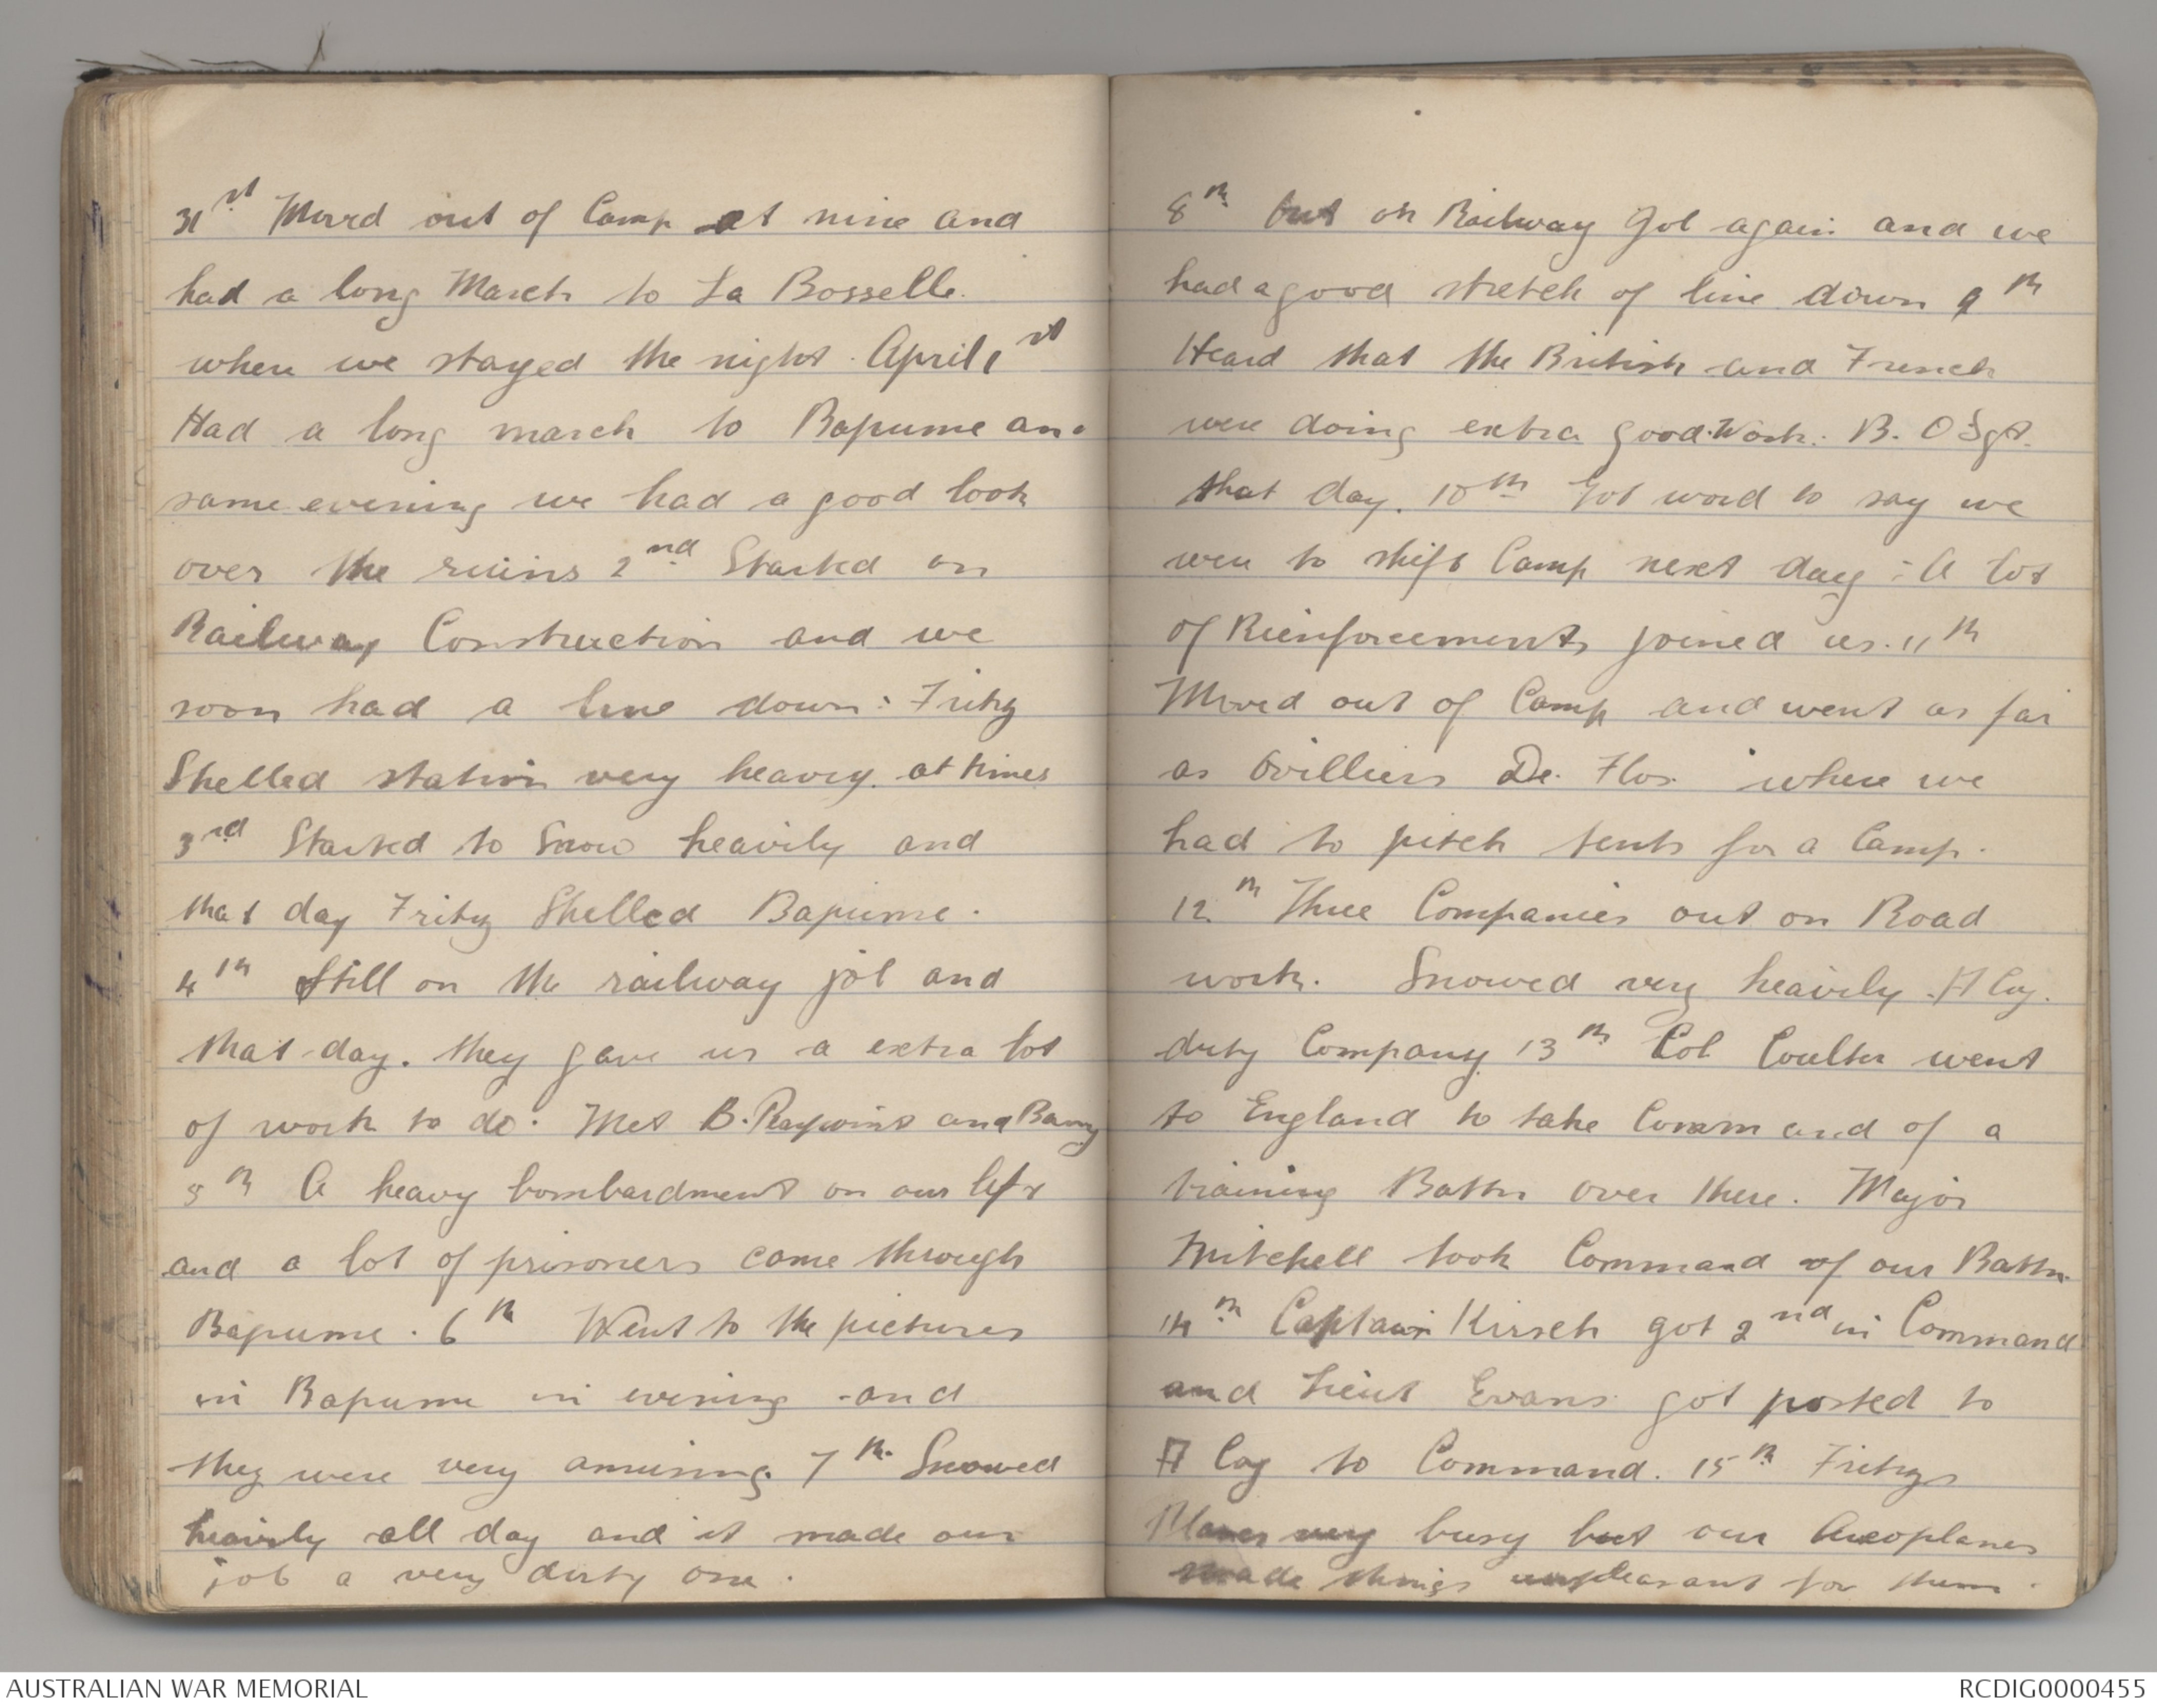 31st Moved out of Camp at nine and
had a long March to La Bosselle.
where we stayed the night. April 1st
Had a long march to Bapume and
same evening we had a good look
over the ruins 2nd Started on
Railway Construction and we
soon had a line down: Fritz
Shelled station very heavy. at times
3rd Started to Snow heavily and
that day Fritz Shelled Bapume.
4th Still on the railway job and
that day. they gave us a extra lot
of work to do. Met B. and Barry
5th A heavy bombardment on our left
and a lot of prisoners came through
Bapume. 6th Went to the pictures
in Bapume in evening and
they were very amusing. 7th Snowed
heavily all day and it made our
job a very dirty one.
8th Out on Railway Job again and we
had a good stretch of line down 9th
Heard that the British and French
were doing extra good Work. B. O Sgt.
that day. 10th Got word to say we
were to shift Camp next day: A lot
of Rienforcements joined us. 11th
Moved out of Camp and went as far
as Ovilliers De. Flos. where we
had to pitch tents for a Camp.
12th Three Companies out on Road
work. Snowed very heavily. A Coy.
duty Company. 13th Col Coulter went
to England to take Command of a
training Battn over there. Major
Mitchell took Command of our Battn.
14th Captain Kirsch got 2nd in Command
and Lieut Evans got posted to
A Coy to Command. 15th Fritzs
Planes very busy but our Aeoplanes
made things unpleasant for them.
AUSTRALIAN WAR MEMORIAL
RCDIG0000455